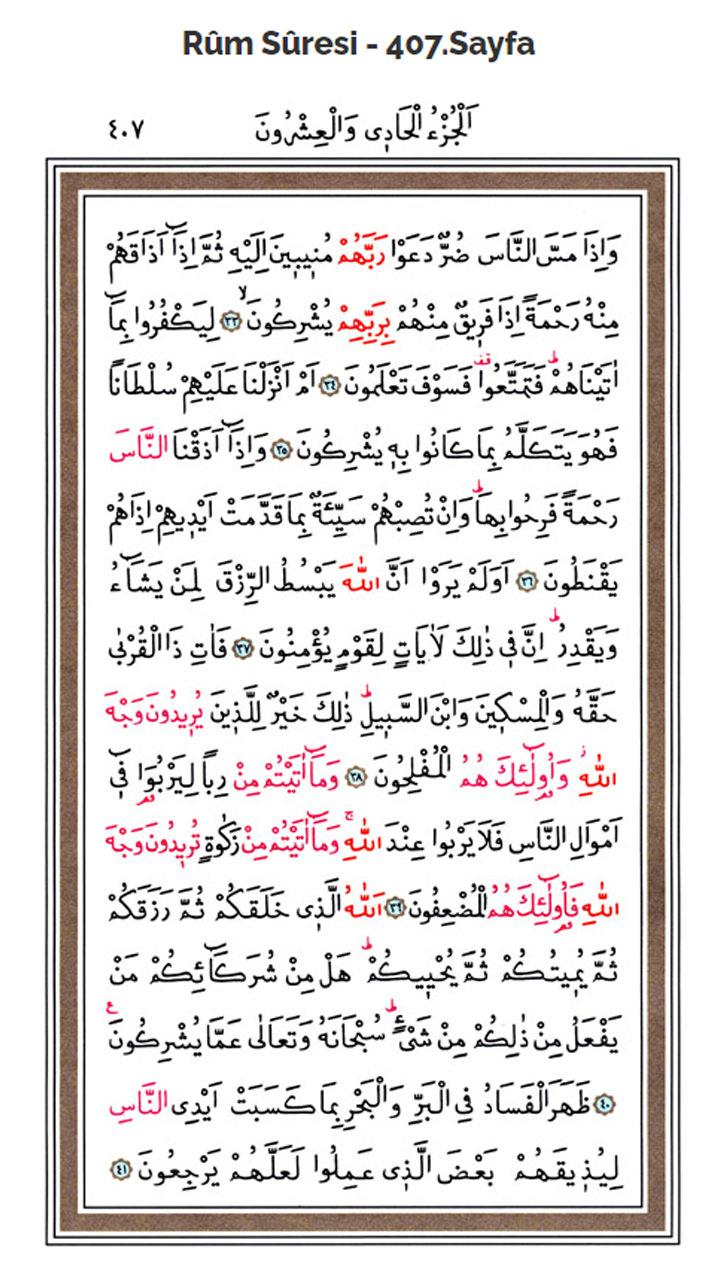 Rûm Sûresi - 407.Sayfa
اَلْجُزْءُ الْحَادِى وَالْعِشْرُونَ ٤٠٧
وَاِذَا مَسَّ النَّاسَ ضُرٌّ دَعَوْا رَبَّهُمْ مُن۪يب۪ينَ اِلَيْهِ ثُمَّ اِذَٓا اَذَاقَهُمْ
مِنْهُ رَحْمَةً اِذَا فَر۪يقٌ مِنْهُمْ بِرَبِّهِمْ يُشْرِكُونَۙ ﴿٣٣﴾ لِيَكْفُرُوا بِمَٓا
اٰتَيْنَاهُمْۜ فَتَمَتَّعُوا۠ فَسَوْفَ تَعْلَمُونَ ﴿٣٤﴾ اَمْ اَنْزَلْنَا عَلَيْهِمْ سُلْطَاناً
فَهُوَ يَتَكَلَّمُ بِمَا كَانُوا بِه۪ يُشْرِكُونَ ﴿٣٥﴾ وَاِذَٓا اَذَقْنَا النَّاسَ
رَحْمَةً فَرِحُوا بِهَاۜ وَاِنْ تُصِبْهُمْ سَيِّئَةٌ بِمَا قَدَّمَتْ اَيْد۪يهِمْ اِذَا هُمْ
يَقْنَطُونَ ﴿٣٦﴾ اَوَلَمْ يَرَوْا اَنَّ اللّٰهَ يَبْسُطُ الرِّزْقَ لِمَنْ يَشَٓاءُ
وَيَقْدِرُۜ اِنَّ ف۪ي ذٰلِكَ لَاٰيَاتٍ لِقَوْمٍ يُؤْمِنُونَ ﴿٣٧﴾ فَاٰتِ ذَا الْقُرْبٰى
حَقَّهُ وَالْمِسْك۪ينَ وَابْنَ السَّب۪يلِۜ ذٰلِكَ خَيْرٌ لِلَّذ۪ينَ يُر۪يدُونَ وَجْهَ
اللّٰهِۘ وَاُو۬لٰٓئِكَ هُمُ الْمُفْلِحُونَ ﴿٣٨﴾ وَمَٓا اٰتَيْتُمْ مِنْ رِباً لِيَرْبُوَ۬ا ف۪ٓي
اَمْوَالِ النَّاسِ فَلَا يَرْبُوا عِنْدَ اللّٰهِۚ وَمَٓا اٰتَيْتُمْ مِنْ زَكٰوةٍ تُر۪يدُونَ وَجْهَ
اللّٰهِ فَاُو۬لٰٓئِكَ هُمُ الْمُضْعِفُونَ ﴿٣٩﴾ اَللّٰهُ الَّذ۪ي خَلَقَكُمْ ثُمَّ رَزَقَكُمْ
ثُمَّ يُم۪يتُكُمْ ثُمَّ يُحْي۪يكُمْۜ هَلْ مِنْ شُرَكَٓائِكُمْ مَنْ
يَفْعَلُ مِنْ ذٰلِكُمْ مِنْ شَيْءٍۜ سُبْحَانَهُ وَتَعَالٰى عَمَّا يُشْرِكُونَ۟
﴿٤٠﴾ ظَهَرَ الْفَسَادُ فِي الْبَرِّ وَالْبَحْرِ بِمَا كَسَبَتْ اَيْدِي النَّاسِ
لِيُذ۪يقَهُمْ بَعْضَ الَّذ۪ي عَمِلُوا لَعَلَّهُمْ يَرْجِعُونَ ﴿٤١﴾